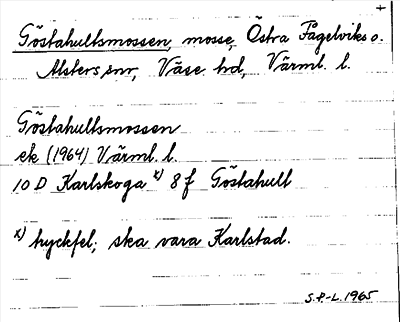 +
Göstahultsmossen, mosse, Östra Fågelviks o.
Alsters snr, Väse hd, Värml. l.
Göstahultsmossen
ek (1964) Värml. l.
10 D Karlskoga x) 8 f Göstahult
x) tryckfel; ska vara Karlstad.
S.P.-L. 1965